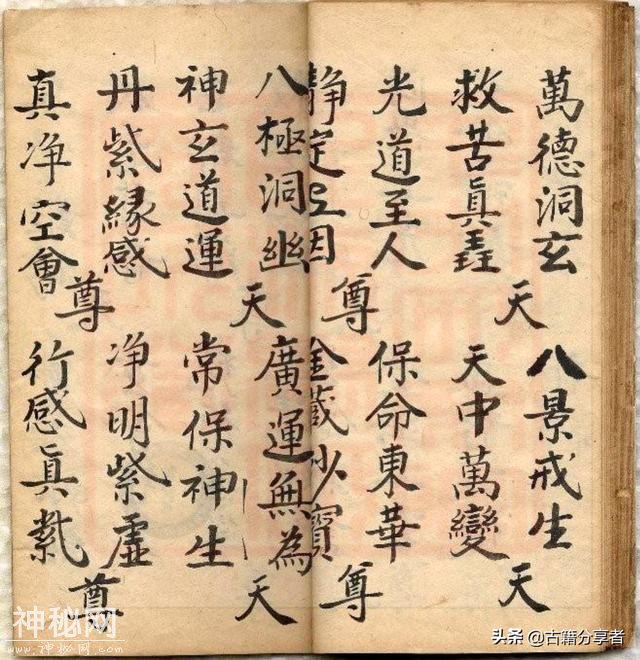 萬德洞玄 八景戒生
天 天
救苦眞 天中萬變
光道至人 保命東華
尊 尊
静定因 金藏寶
八極洞幽 廣運無為
天 天
神玄道運 常保神生
丹紫緣感 净明紫虛
尊 尊
真净空會 行感眞
神秘网
www.神秘网.com
头条 @古籍分享者